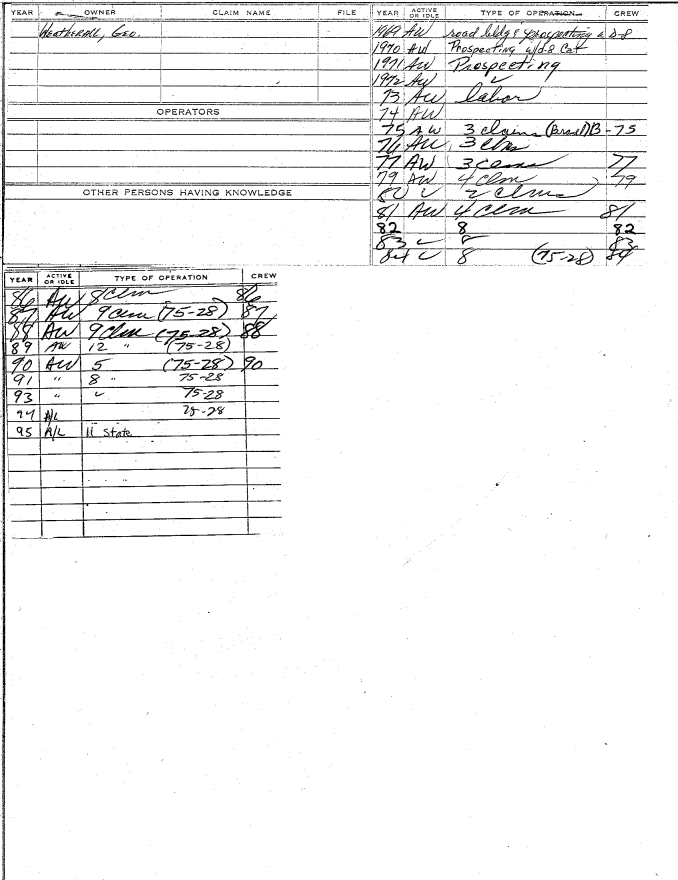 YEAR OWNER CLAIM NAME FILE
Weatherall, Geo.
OPERATORS
OTHER PERSONS HAVING KNOWLEDGE
YEAR ACTIVE OR IDLE TYPE OF OPERATION CREW
1969 AW road bldg & prospecting w D-8
1970 AW Prospecting w/d-8 Cat
1971 AW Prospecting
1972 AW ✓
73 AW labor
74 AW
75 AW 3 claims 13-75
76 AW 3 clms
77 AW 3 clms 77
79 AW 4 clm 79
80 ✓ 2 clms
81 AW 4 clm 81
82 8 82
83 ✓ 8 83
84 ✓ 8 (75-28) 84
YEAR ACTIVE OR IDLE TYPE OF OPERATION CREW
86 AW 8 clm 86
87 AW 9 clm (75-28) 87
88 AW 9 clm (75-28) 88
89 AW 12 " (75-28)
90 AW 5 (75-28) 90
91 " 8 " 75-28
93 " ✓ 75-28
94 A/L 75-28
95 A/L 11 State